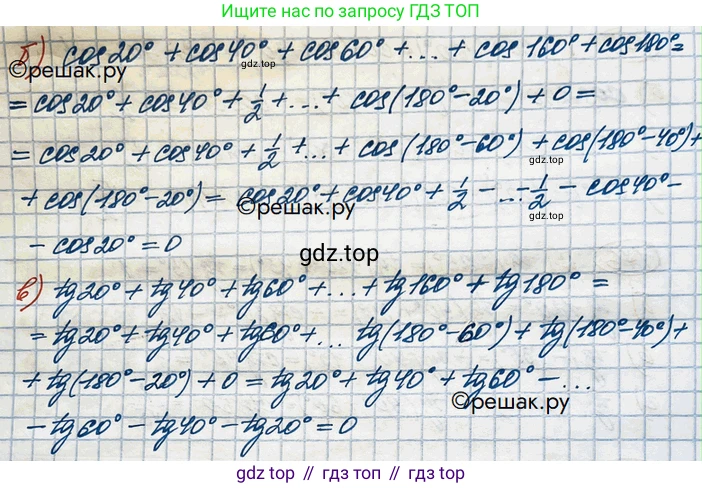 Ищите нас по запросу ГДЗ ТОП
б) cos20° + cos40° + cos60° + ... + cos 160° + cos180° =
gdz.top
©решак.ру
= cos20° + cos40° + 1/2 + ... + cos(180° - 20°) + 0 =
= cos20° + cos40° + 1/2 + ... + cos(180° - 60°) + cos(180° - 40°) +
+ cos(180° - 20°) = cos20° + cos40° + 1/2 - ... - 1/2 - cos40° -
©решак.ру
gdz.top
- cos20° = 0
gdz.top
в) tg20° + tg40° + tg60° + ... + tg160° + tg180° =
= tg20° + tg40° + tg60° + ... tg(180° - 60°) + tg(180° - 40°) +
gdz.top
+ tg(180° - 20°) + 0 = tg20° + tg40° + tg60° - ...
©решак.ру
- tg60° - tg40° - tg20° = 0
gdz top // гдз топ // gdz.top